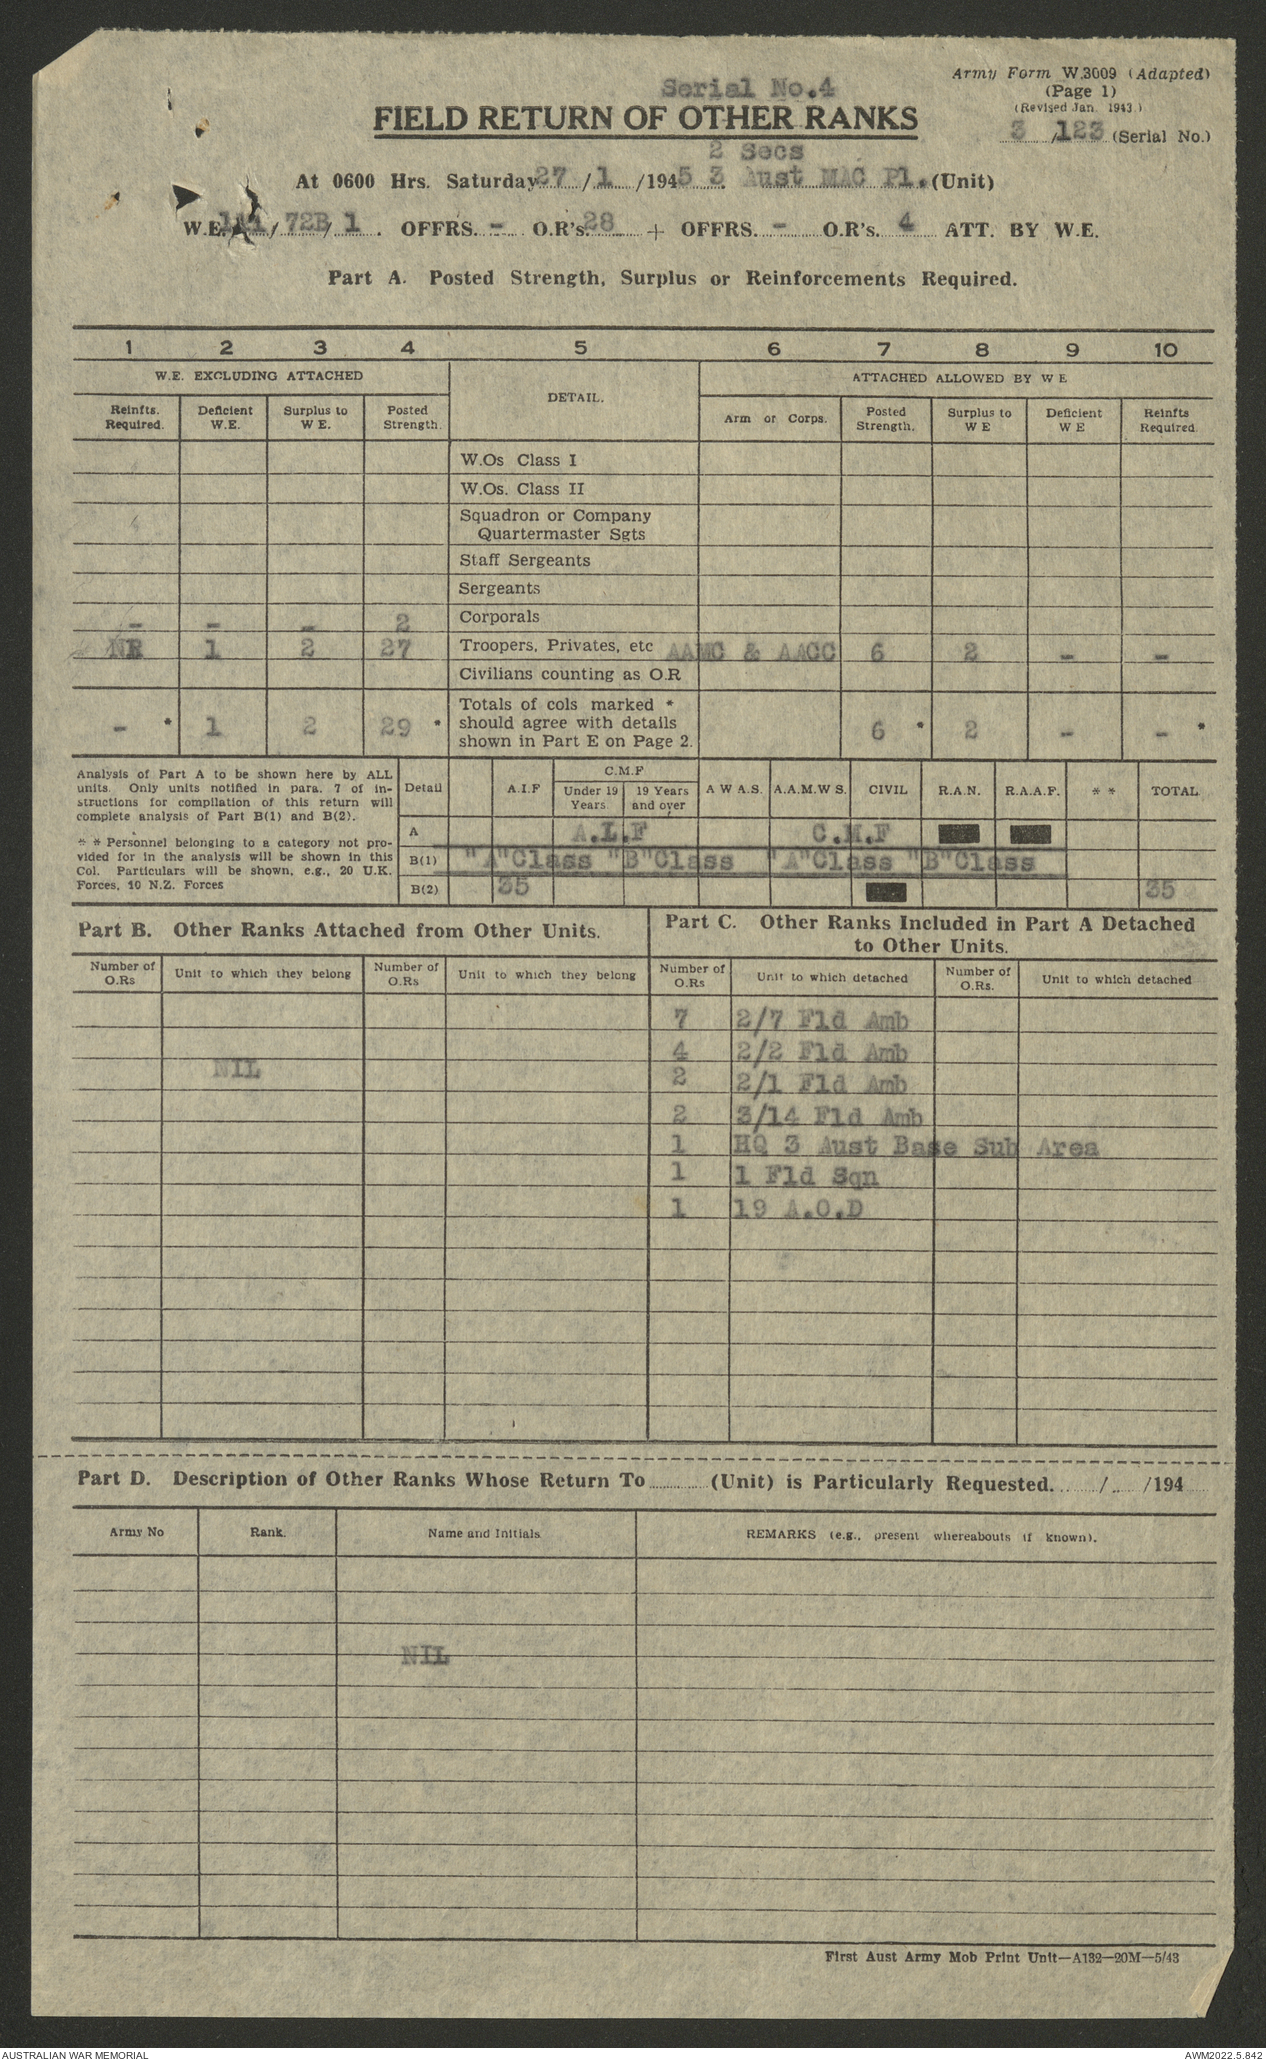 Serial No.4
Army Form W.3009 (Adapted)
(Page 1)
(Revised Jan. 1943.)
3 / 123 (Serial No.)
FIELD RETURN OF OTHER RANKS
2 Secs
At 0600 Hrs. Saturday 27 / 1 /1945 3 Aust MAC Pl. (Unit)
W.E. / 72B / 1 . OFFRS. - O.R's. 28 + OFFRS. - O.R's. 4 ATT. BY W.E.
Part A. Posted Strength, Surplus or Reinforcements Required.
1 2 3 4 5 6 7 8 9 10
W.E. EXCLUDING ATTACHED DETAIL. ATTACHED ALLOWED BY W E
Reinfts. Required. Deficient W.E. Surplus to W E. Posted Strength. Arm or Corps. Posted Strength. Surplus to W E Deficient W E Reinfts Required.
W.Os Class I
W.Os. Class II
Squadron or Company
Quartermaster Sgts
Staff Sergeants
Sergeants
- - - 2 Corporals
NR 1 2 27 Troopers, Privates, etc AAMC & AACC 6 2 - -
Civilians counting as O.R
Totals of cols marked *
should agree with details
shown in Part E on Page 2.
- * 1 2 29 * 6 * 2 - - *
Analysis of Part A to be shown here by ALL
units. Only units notified in para. 7 of in-
structions for compilation of this return will
complete analysis of Part B(1) and B(2).
* * Personnel belonging to a category not pro-
vided for in the analysis will be shown in this
Col. Particulars will be shown, e.g., 20 U.K.
Forces, 10 N.Z. Forces
Detail A.I.F C.M.F Under 19 Years 19 Years and over A W A.S. A.A.M.W S. CIVIL R.A.N. R.A.A.F. * * TOTAL
A A.I.F C.M.F
B(1) "A"Class "B"Class "A"Class "B"Class
B(2) 35 35
Part B. Other Ranks Attached from Other Units.
Part C. Other Ranks Included in Part A Detached
to Other Units.
Number of O.Rs Unit to which they belong Number of O.Rs Unit to which they belong Number of O.Rs Unit to which detached Number of O.Rs. Unit to which detached
NIL
7 2/7 Fld Amb
4 2/2 Fld Amb
2 2/1 Fld Amb
2 3/14 Fld Amb
1 HQ 3 Aust Base Sub Area
1 1 Fld Sqn
1 19 A.O.D
Part D. Description of Other Ranks Whose Return To ........ (Unit) is Particularly Requested. ..../..../194
Army No Rank. Name and Initials REMARKS (e.g., present whereabouts if known).
NIL
First Aust Army Mob Print Unit—A132—20M—5/43
AUSTRALIAN WAR MEMORIAL
AWM2022.5.842